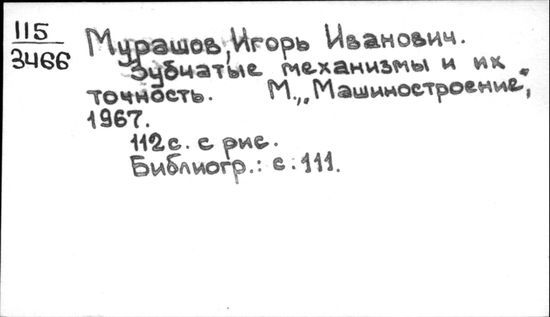 115
3466
Мурашов, Игорь Иванович.
Зубчатые механизмы и их
точность. М., „Машиностроение",
1967.
112 с. с рис.
Библиогр.: с. 111.